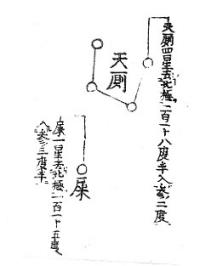 天厠四星去北極一百一十八度半入參二度
天厠
屎
屎一星去北極一百一十五度
入參三度半